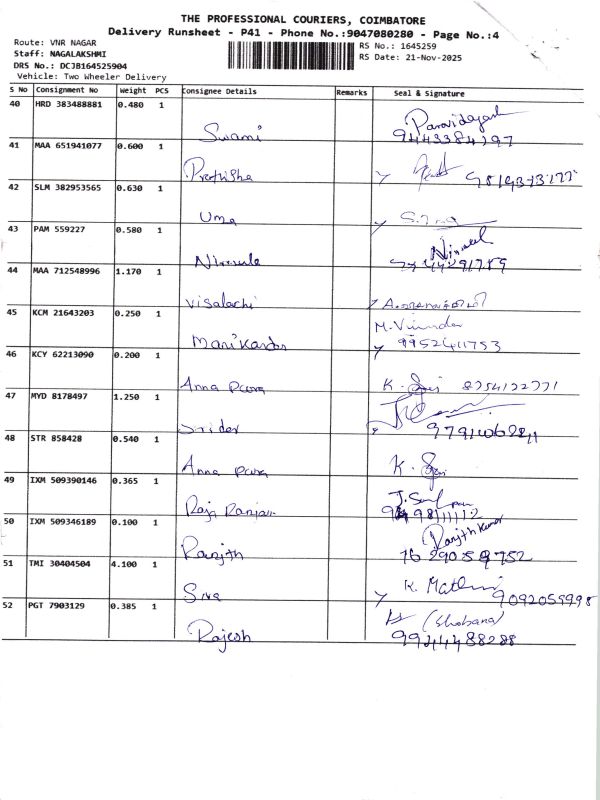 THE PROFESSIONAL COURIERS, COIMBATORE
Delivery Runsheet - P41 - Phone No.:9047080280 - Page No.:4
Route: VNR NAGAR
RS No.: 1645259
Staff: NAGALAKSHMI
RS Date: 21-Nov-2025
DRS No.: DCJB164525904
Vehicle: Two Wheeler Delivery
S No Consignment No Weight PCS Consignee Details Remarks Seal & Signature
40 HRD 383488881 0.480 1
Swami
41 MAA 651941077 0.600 1
Prethisha
42 SLM 382953565 0.630 1
Uma
43 PAM 559227 0.580 1
Nirmala
44 MAA 712548996 1.170 1
Visalachi
45 KCM 21643203 0.250 1
M.
Manikandan 9952411753
46 KCY 62213090 0.200 1
Anna Poorna K. 8754122771
47 MYD 8178497 1.250 1
Sridar
48 STR 858428 0.540 1
Anna Poorna K.
49 IXM 509390146 0.365 1
Raja Ranjan
50 IXM 509346189 0.100 1
Ranjith Kumar
Ranjith
51 TMI 30404504 4.100 1
K.
Siva 9092059998
52 PGT 7903129 0.385 1
(Shobana)
Rajesh 9944488288